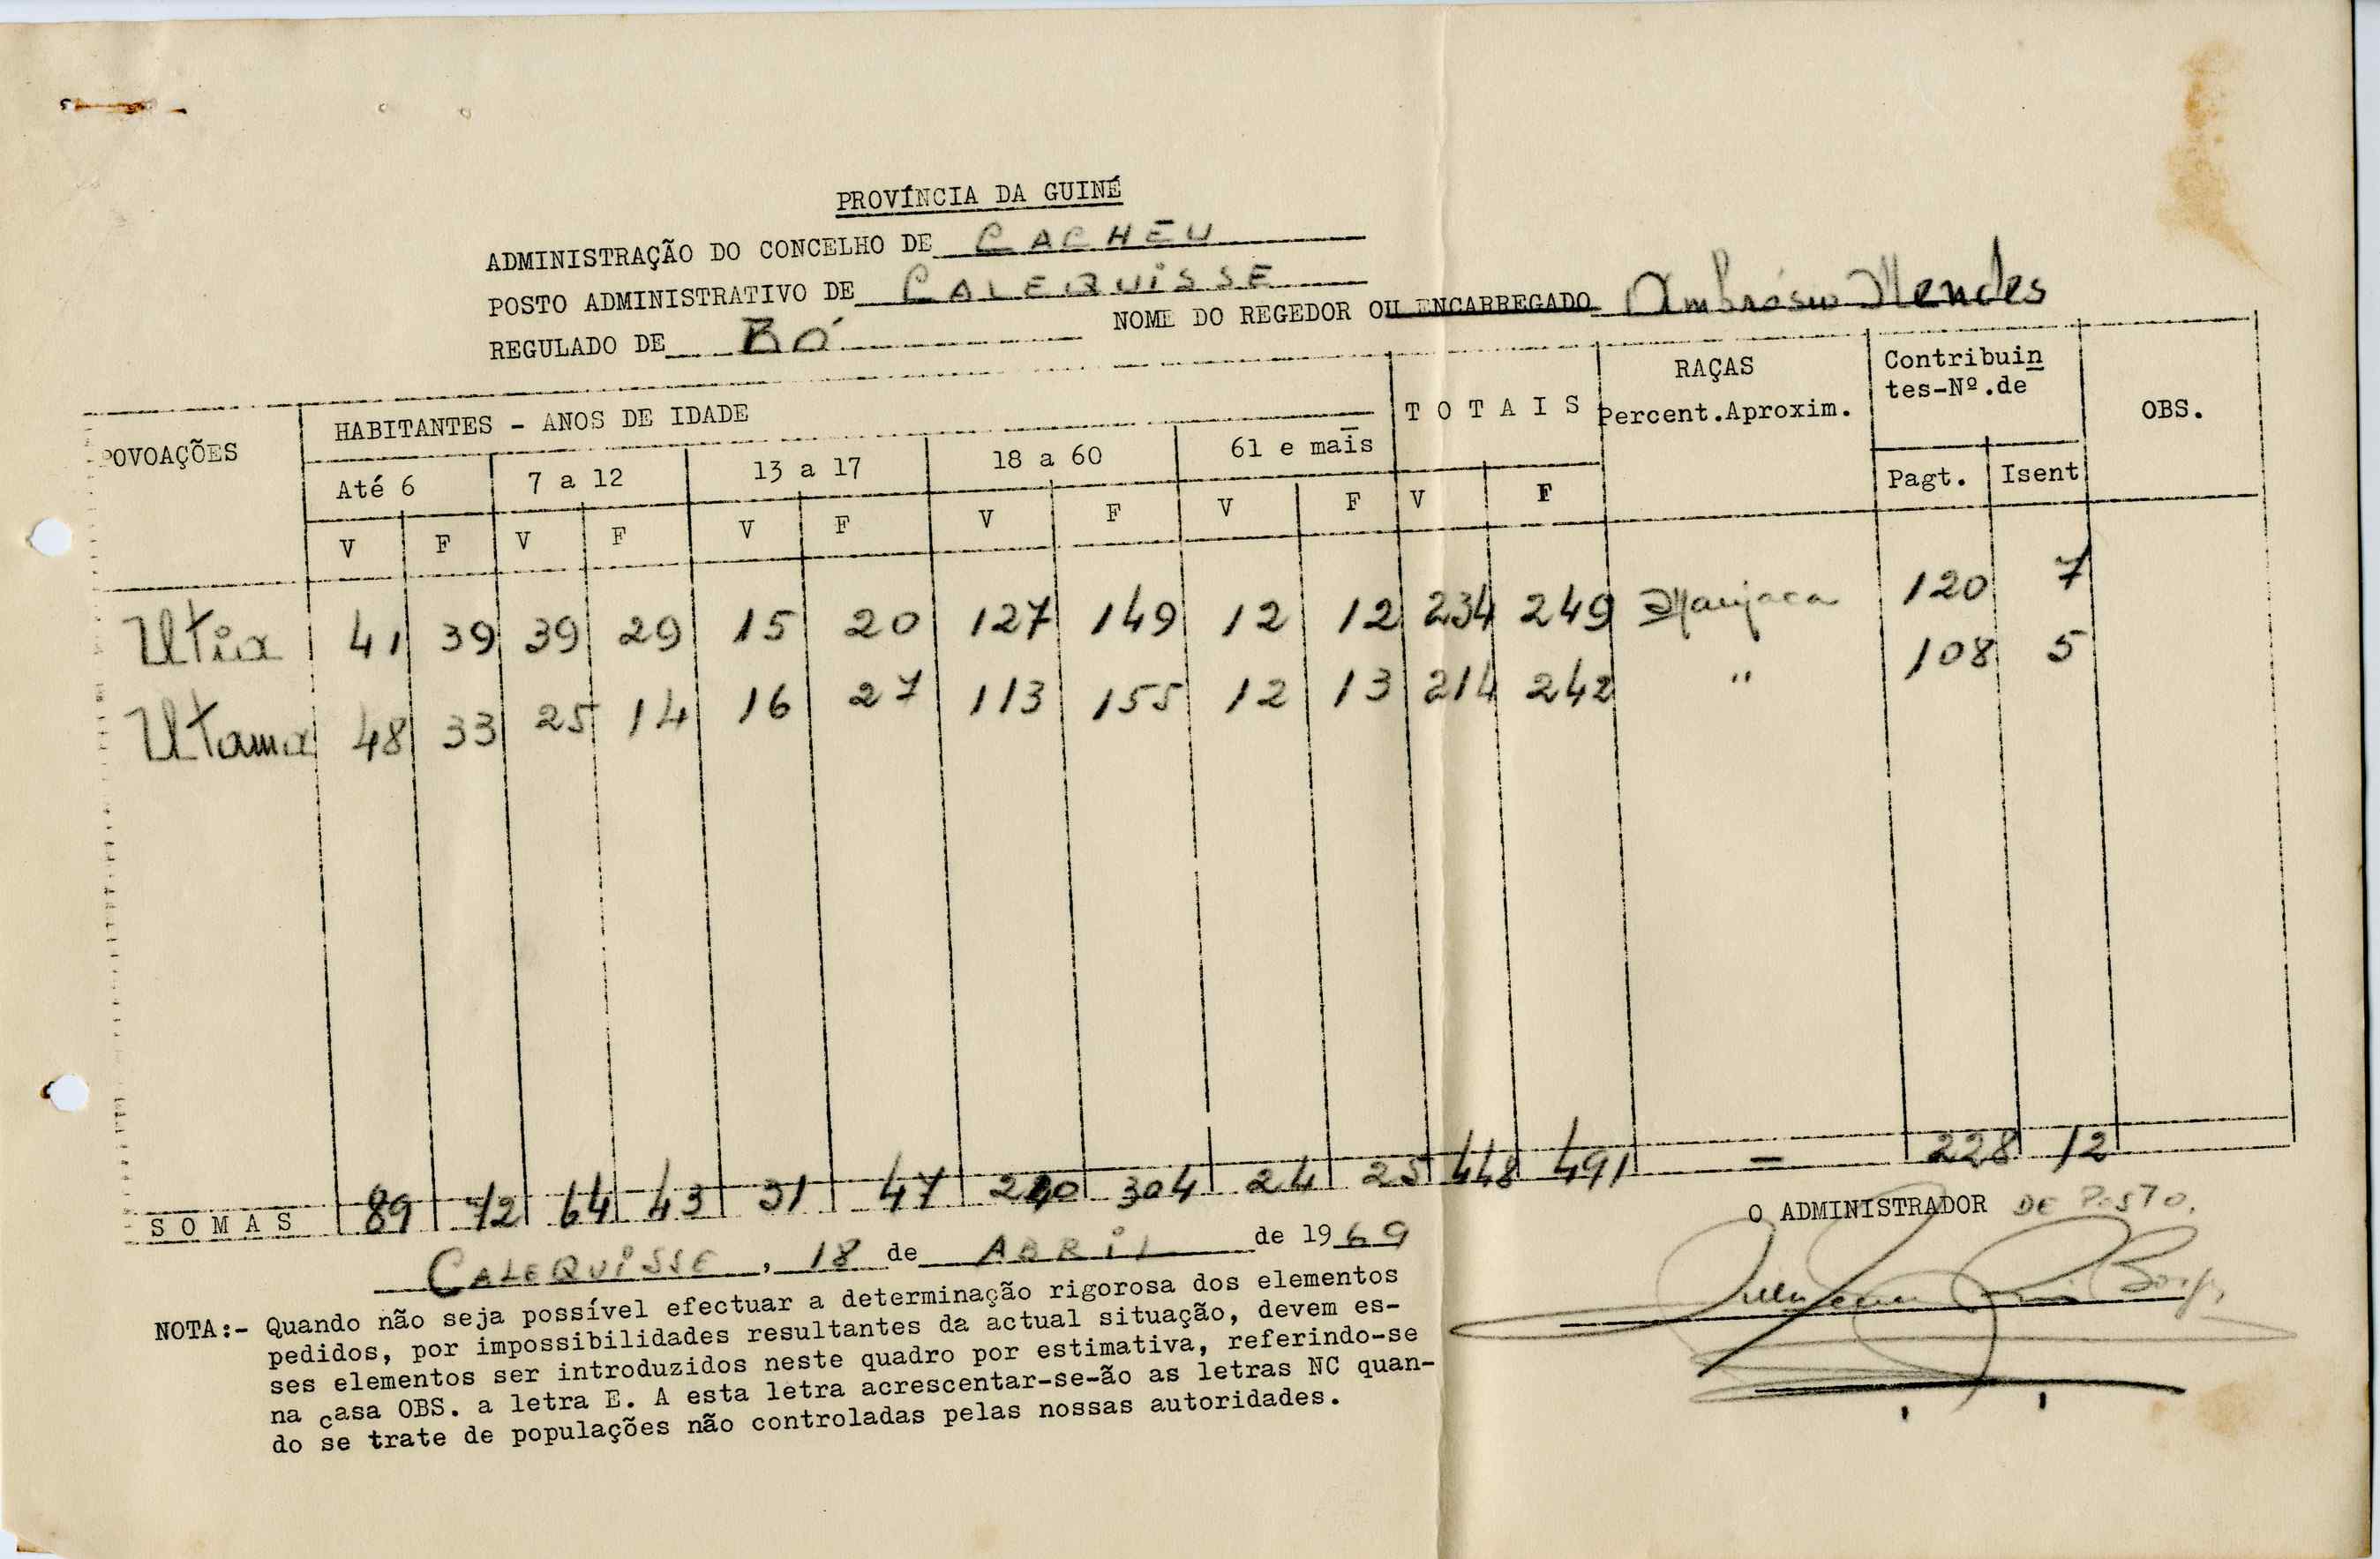 PROVÍNCIA DA GUINÉ
ADMINISTRAÇÃO DO CONCELHO DE CACHEU
POSTO ADMINISTRATIVO DE CALEQUISSE
REGULADO DE BÓ NOME DO REGEDOR OU ENCARREGADO Ambrósio Mendes
POVOAÇÕES HABITANTES - ANOS DE IDADE T O T A I S RAÇAS Percent.Aproxim. Contribuin tes-Nº.de OBS.
Até 6 7 a 12 13 a 17 18 a 60 61 e mais Pagt. Isent
V F V F V F V F V F V F
Utia 41 39 39 29 15 20 127 149 12 12 234 249 Manjaca 120 7
Utama 48 33 25 14 16 27 113 155 12 13 214 242 " 108 5
S O M A S 89 72 64 43 31 47 240 304 24 25 448 491 - 228 12
CALEQUISSE, 18 de ABRIL de 1969
O ADMINISTRADOR DE POSTO.
NOTA:- Quando não seja possível efectuar a determinação rigorosa dos elementos
pedidos, por impossibilidades resultantes da actual situação, devem es-
ses elementos ser introduzidos neste quadro por estimativa, referindo-se
na casa OBS. a letra E. A esta letra acrescentar-se-ão as letras NC quan-
do se trate de populações não controladas pelas nossas autoridades.